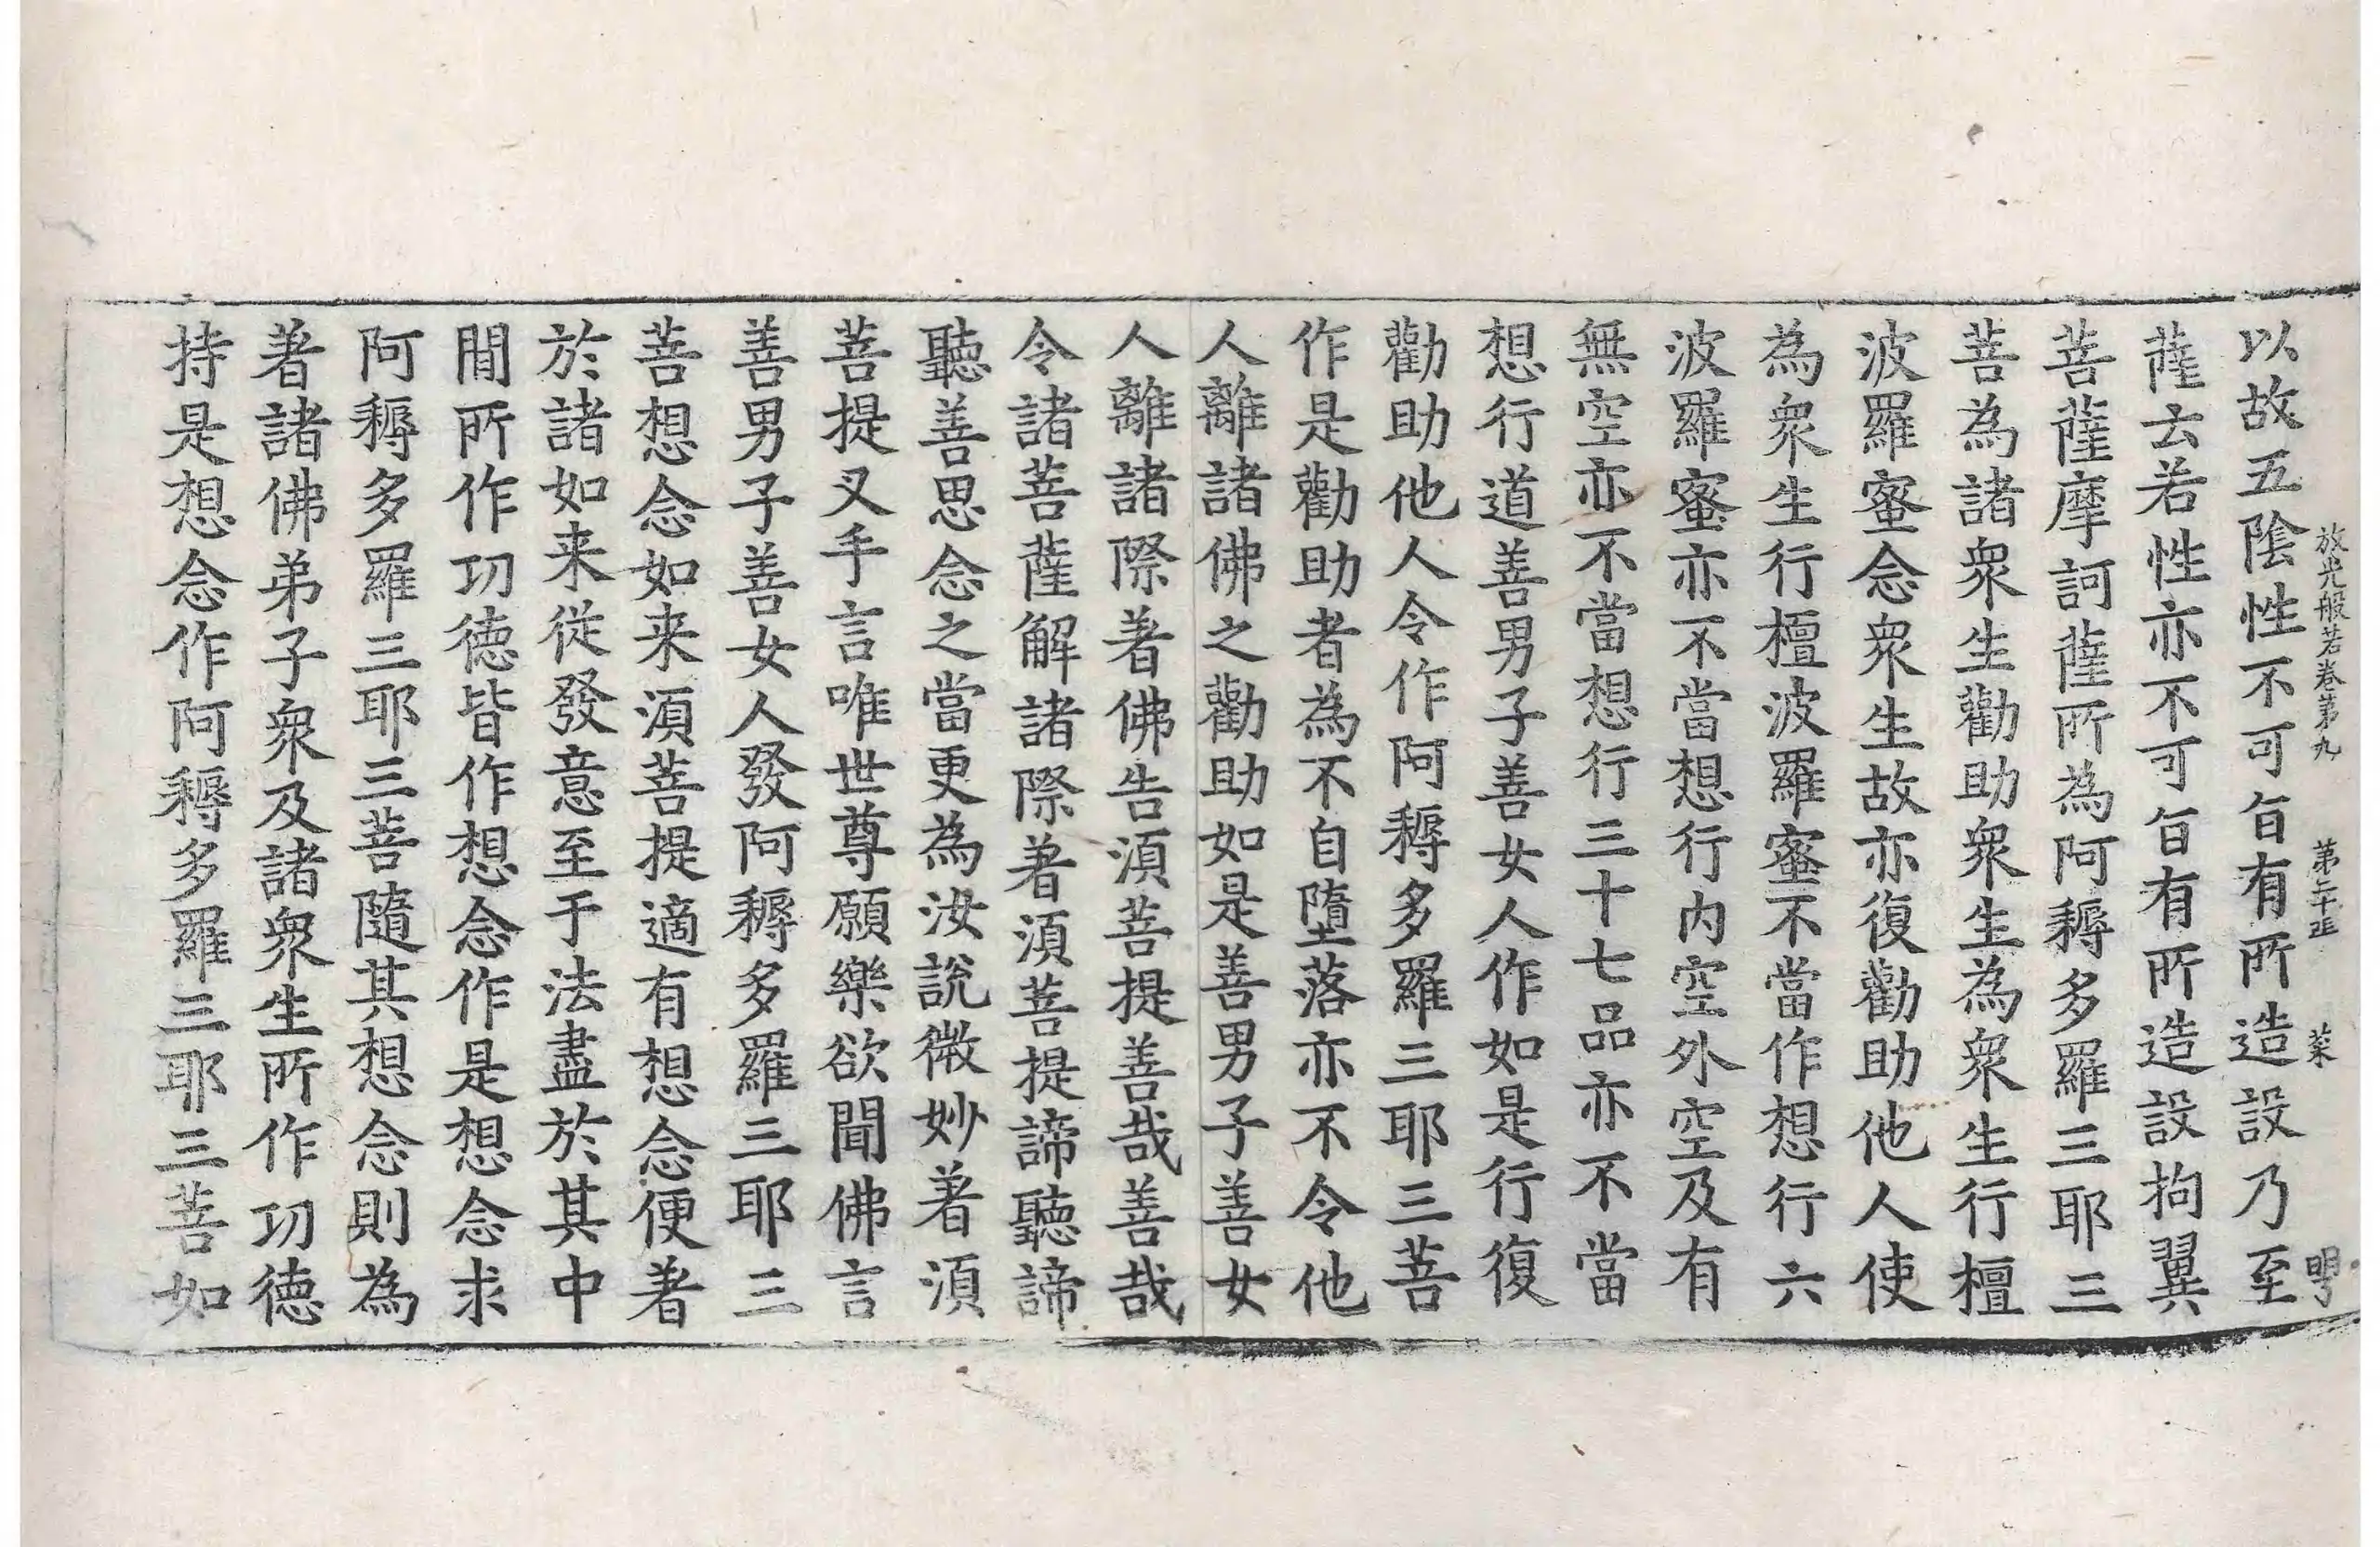 放光般若卷第九 第二十五 菜 明
以故五陰性不可㫖有所造設乃至
薩云若性亦不可㫖有所造設拘翼
菩薩摩訶薩所為阿耨多羅三耶三
菩為諸衆生勸助衆生為衆生行檀
波羅蜜念衆生故亦復勸助他人使
為衆生行檀波羅蜜不當作想行六
波羅蜜亦不當想行內空外空及有
無空亦不當想行三十七品亦不當
想行道善男子善女人作如是行復
勸助他人令作阿耨多羅三耶三菩
作是勸助者為不自墮落亦不令他
人離諸佛之勸助如是善男子善女
人離諸際著佛告須菩提善哉善哉
令諸菩薩解諸際著須菩提諦聽諦
聽善思念之當更為汝說微妙著須
菩提叉手言唯世尊願樂欲聞佛言
善男子善女人發阿耨多羅三耶三
菩想念如来須菩提適有想念便著
於諸如来從發意至于法盡於其中
間所作功德皆作想念作是想念求
阿耨多羅三耶三菩隨其想念則為
著諸佛弟子衆及諸衆生所作功德
持是想念作阿耨多羅三耶三菩如